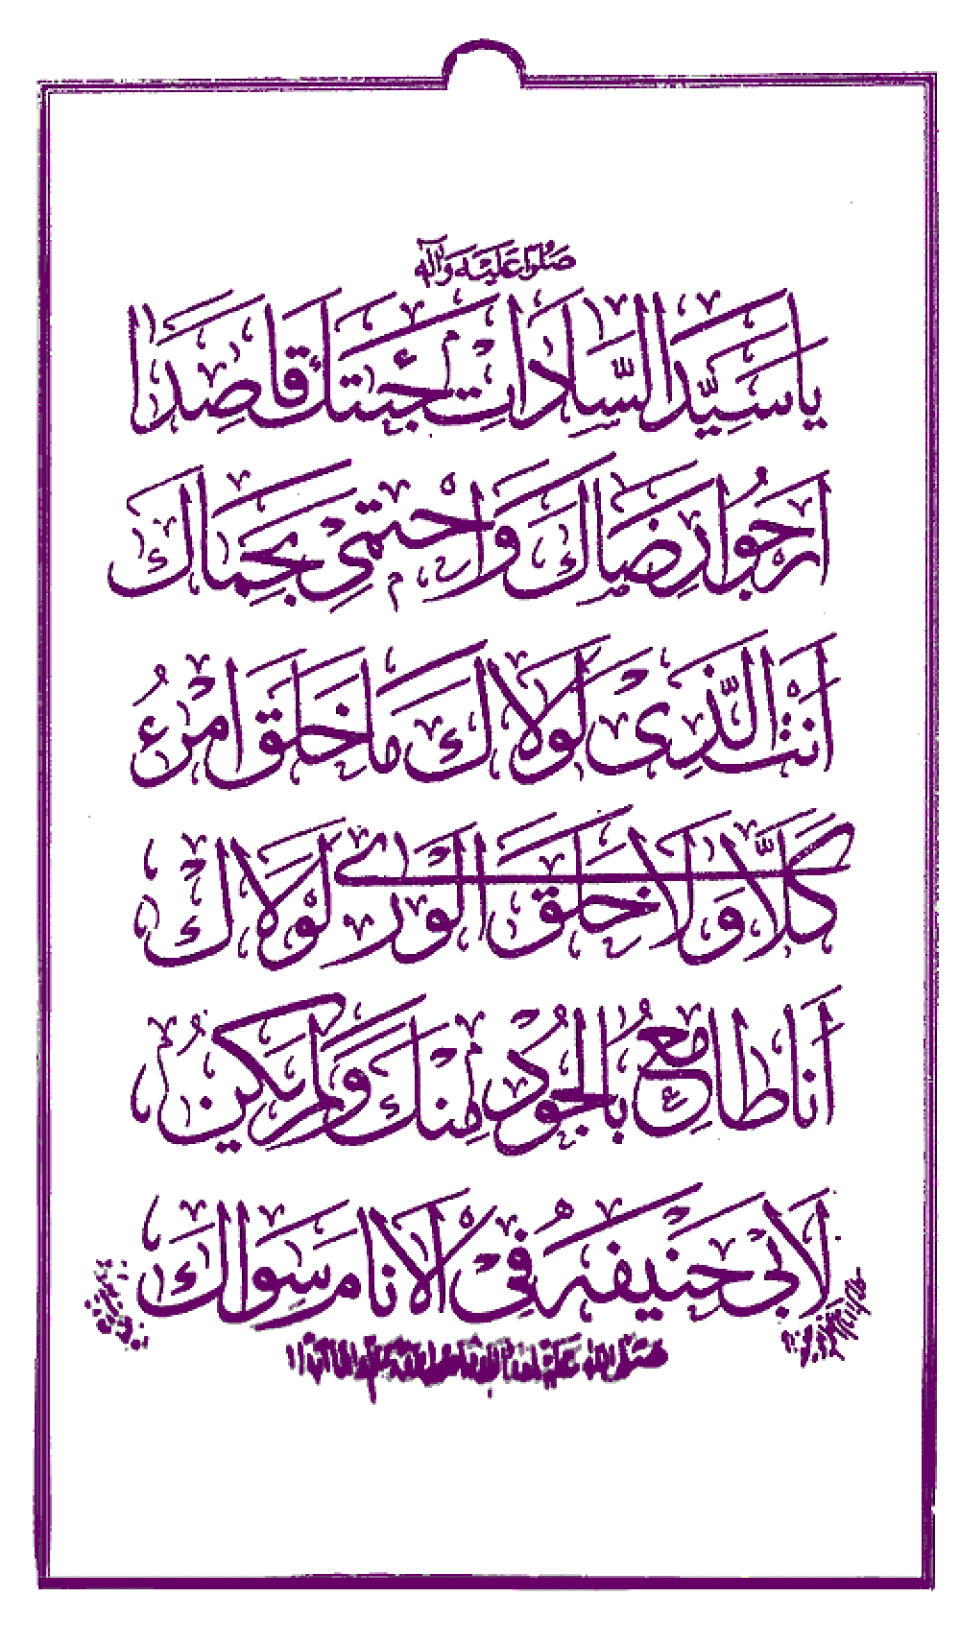 صلوا عليه وآله
يَا سَيِّدَ السَّادَاتِ جِئْتُكَ قَاصِدًا
اَرْجُوا رِضَاكَ وَاَحْتَمِىْ بِحِمَاكَ
اَنْتَ الَّذِىْ لَوْلَاكَ مَا خَلَقَ امْرُءٌ
كَلَّا وَلَا خَلَقَ الْوَرٰى لَوْلَاكَ
اَنَا طَامِعٌ بِالْجُوْدِ مِنْكَ وَلَمْ يَكُنْ
لِاَبِىْ حَنِيْفَةَ فِىْ الْاَنَامِ سِوَاكَ